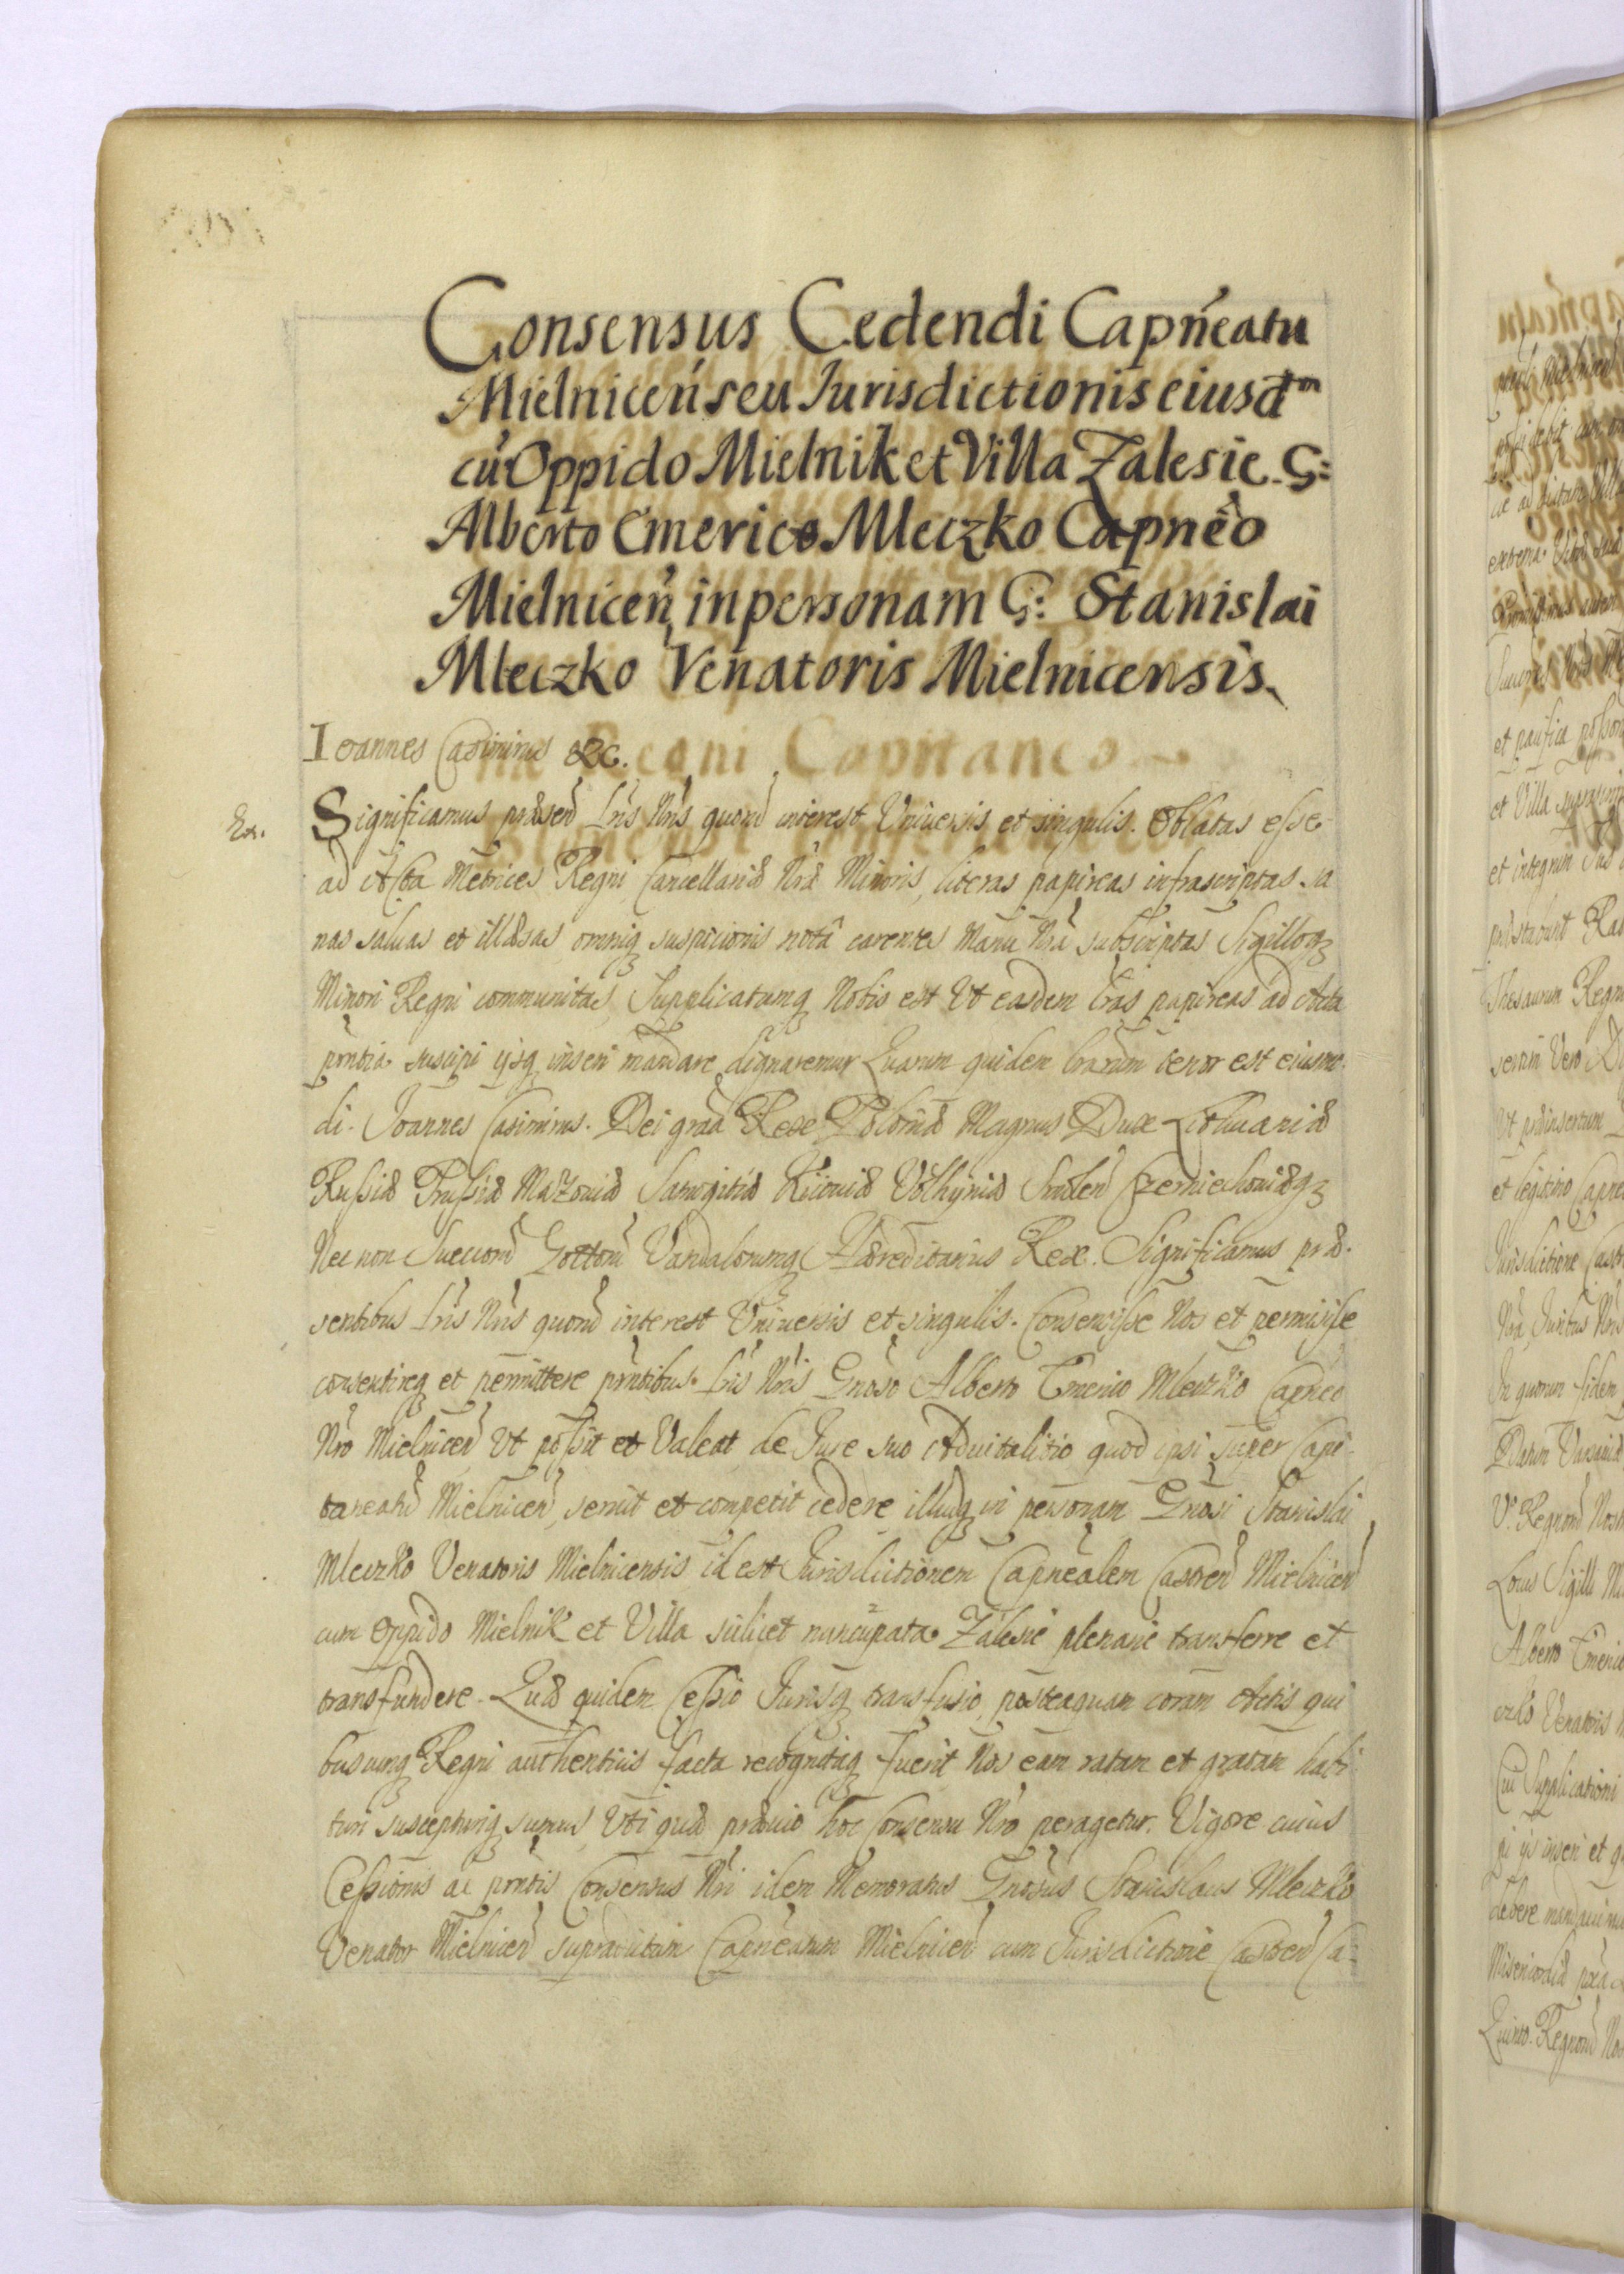 Consensus Cedendi Capn̄eatu
Mielnicen̄ seu Jurisdictionis eiusd̄m
cū Oppido Mielnik et Villa Zalesie G:
Alberto Emerico Mleczko Capnēo
Mielnicen̄ in personam G: Stanislai
Mleczko Venatoris Mielnicensis
Ioannes Casimirus &c.
Significamus præsen̄ Lr̄is Nr̄is quorū interest Vniuersis et singulis. Oblatas esse
ad Acta Metrices Regni Cancellariæ Nrā Minoris, literas papireas infrascriptas. sa
nas saluas et illæsas, omniq suspicionis notâ carentes Manu Nrā subscriptas Sigilloq
Minori Regni communitas, Supplicatumq Nobis est Vt easdem Lrās papireas ad Acta
prn̄tia suscipi ijsq inseri mandare dignaremur Quarum quidem lrārum tenor est eiusmo
di. Joannes Casimirus. Dei grā̄ Rex Poloniæ Magnus Dux Lithuaniæ
Russiæ Prussiæ Mazouiæ Samogitiæ Kiiouiæ Volhyniæ Smolen̄ Czerniechouiæq
Nec non Suecorū Gottorū Vandalorumq Hæreditarius Rex. Significamus præ-
sentibus Lr̄is Nr̄is quorū interest Vniuersis et singulis. Consensisse Nos et permisisse
consentireq et permittere prn̄tibus. Lr̄is Nr̄is Gnōso Alberto Emerico Mleczko Capneo
Nr̄o Mielnicen̄ Vt possit et Valeat de Jure suo Aduitalitio quod ipsi super Capi-
taneatū Mielnicen̄, seruit et competit cedere illudq in personam Gnōsi Stanislai
Mleczko Venatoris Mielnicensis id est Jurisdictionem Capnēalem Castren̄ Mielnicen̄
cum Oppido Mielnik et Villa scilicet nuncupata Zalesie plenarie transferre et
transfundere. Quæ quidem Cessio Jurisq transfusio, posteaquam coram Actis qui
buscunq Regni authenticis facta recognitaq fuerit Nos eam ratam et gratam habi
turi suscepturiq sumus, Vti quæ præuio hoc Consensu Nr̄o peragetur. Vigore cuius
Cessionis ac prn̄tis Consensus Nr̄i idem Memoratus Gnōsus Stanislaus Mleczko
Venator Mielnicen̄ supradictum Capnēatum Mielnicen̄ cum Jurisdictione Castren̄ Ca-